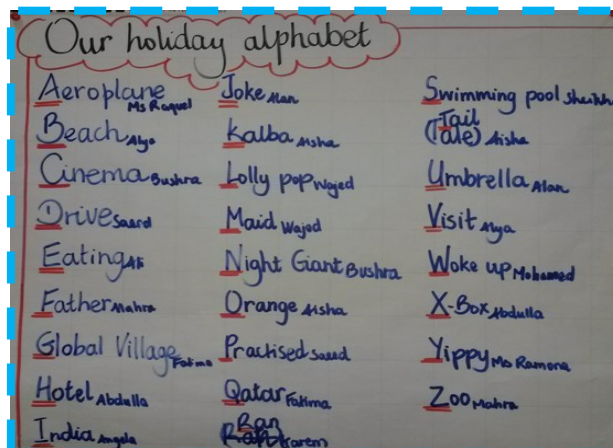 Our holiday alphabet
Aeroplane Ms Raquel
Beach Alya
Cinema Bushra
Drive Saeed
Eating Ali
Father Mahra
Global Village Fatima
Hotel Abdulla
India Angela
Joke Alan
Kalba Aisha
Lolly pop Wajed
Maid Wajed
Night Giant Bushra
Orange Aisha
Practised Saeed
Qatar Fatima
Ran
Karem
Swimming pool Sheikh
Tail
(Tale) Aisha
Umbrella Alan
Visit Alya
Woke up Mohamed
X-Box Abdulla
Yippy Ms Ramona
Zoo Mahra